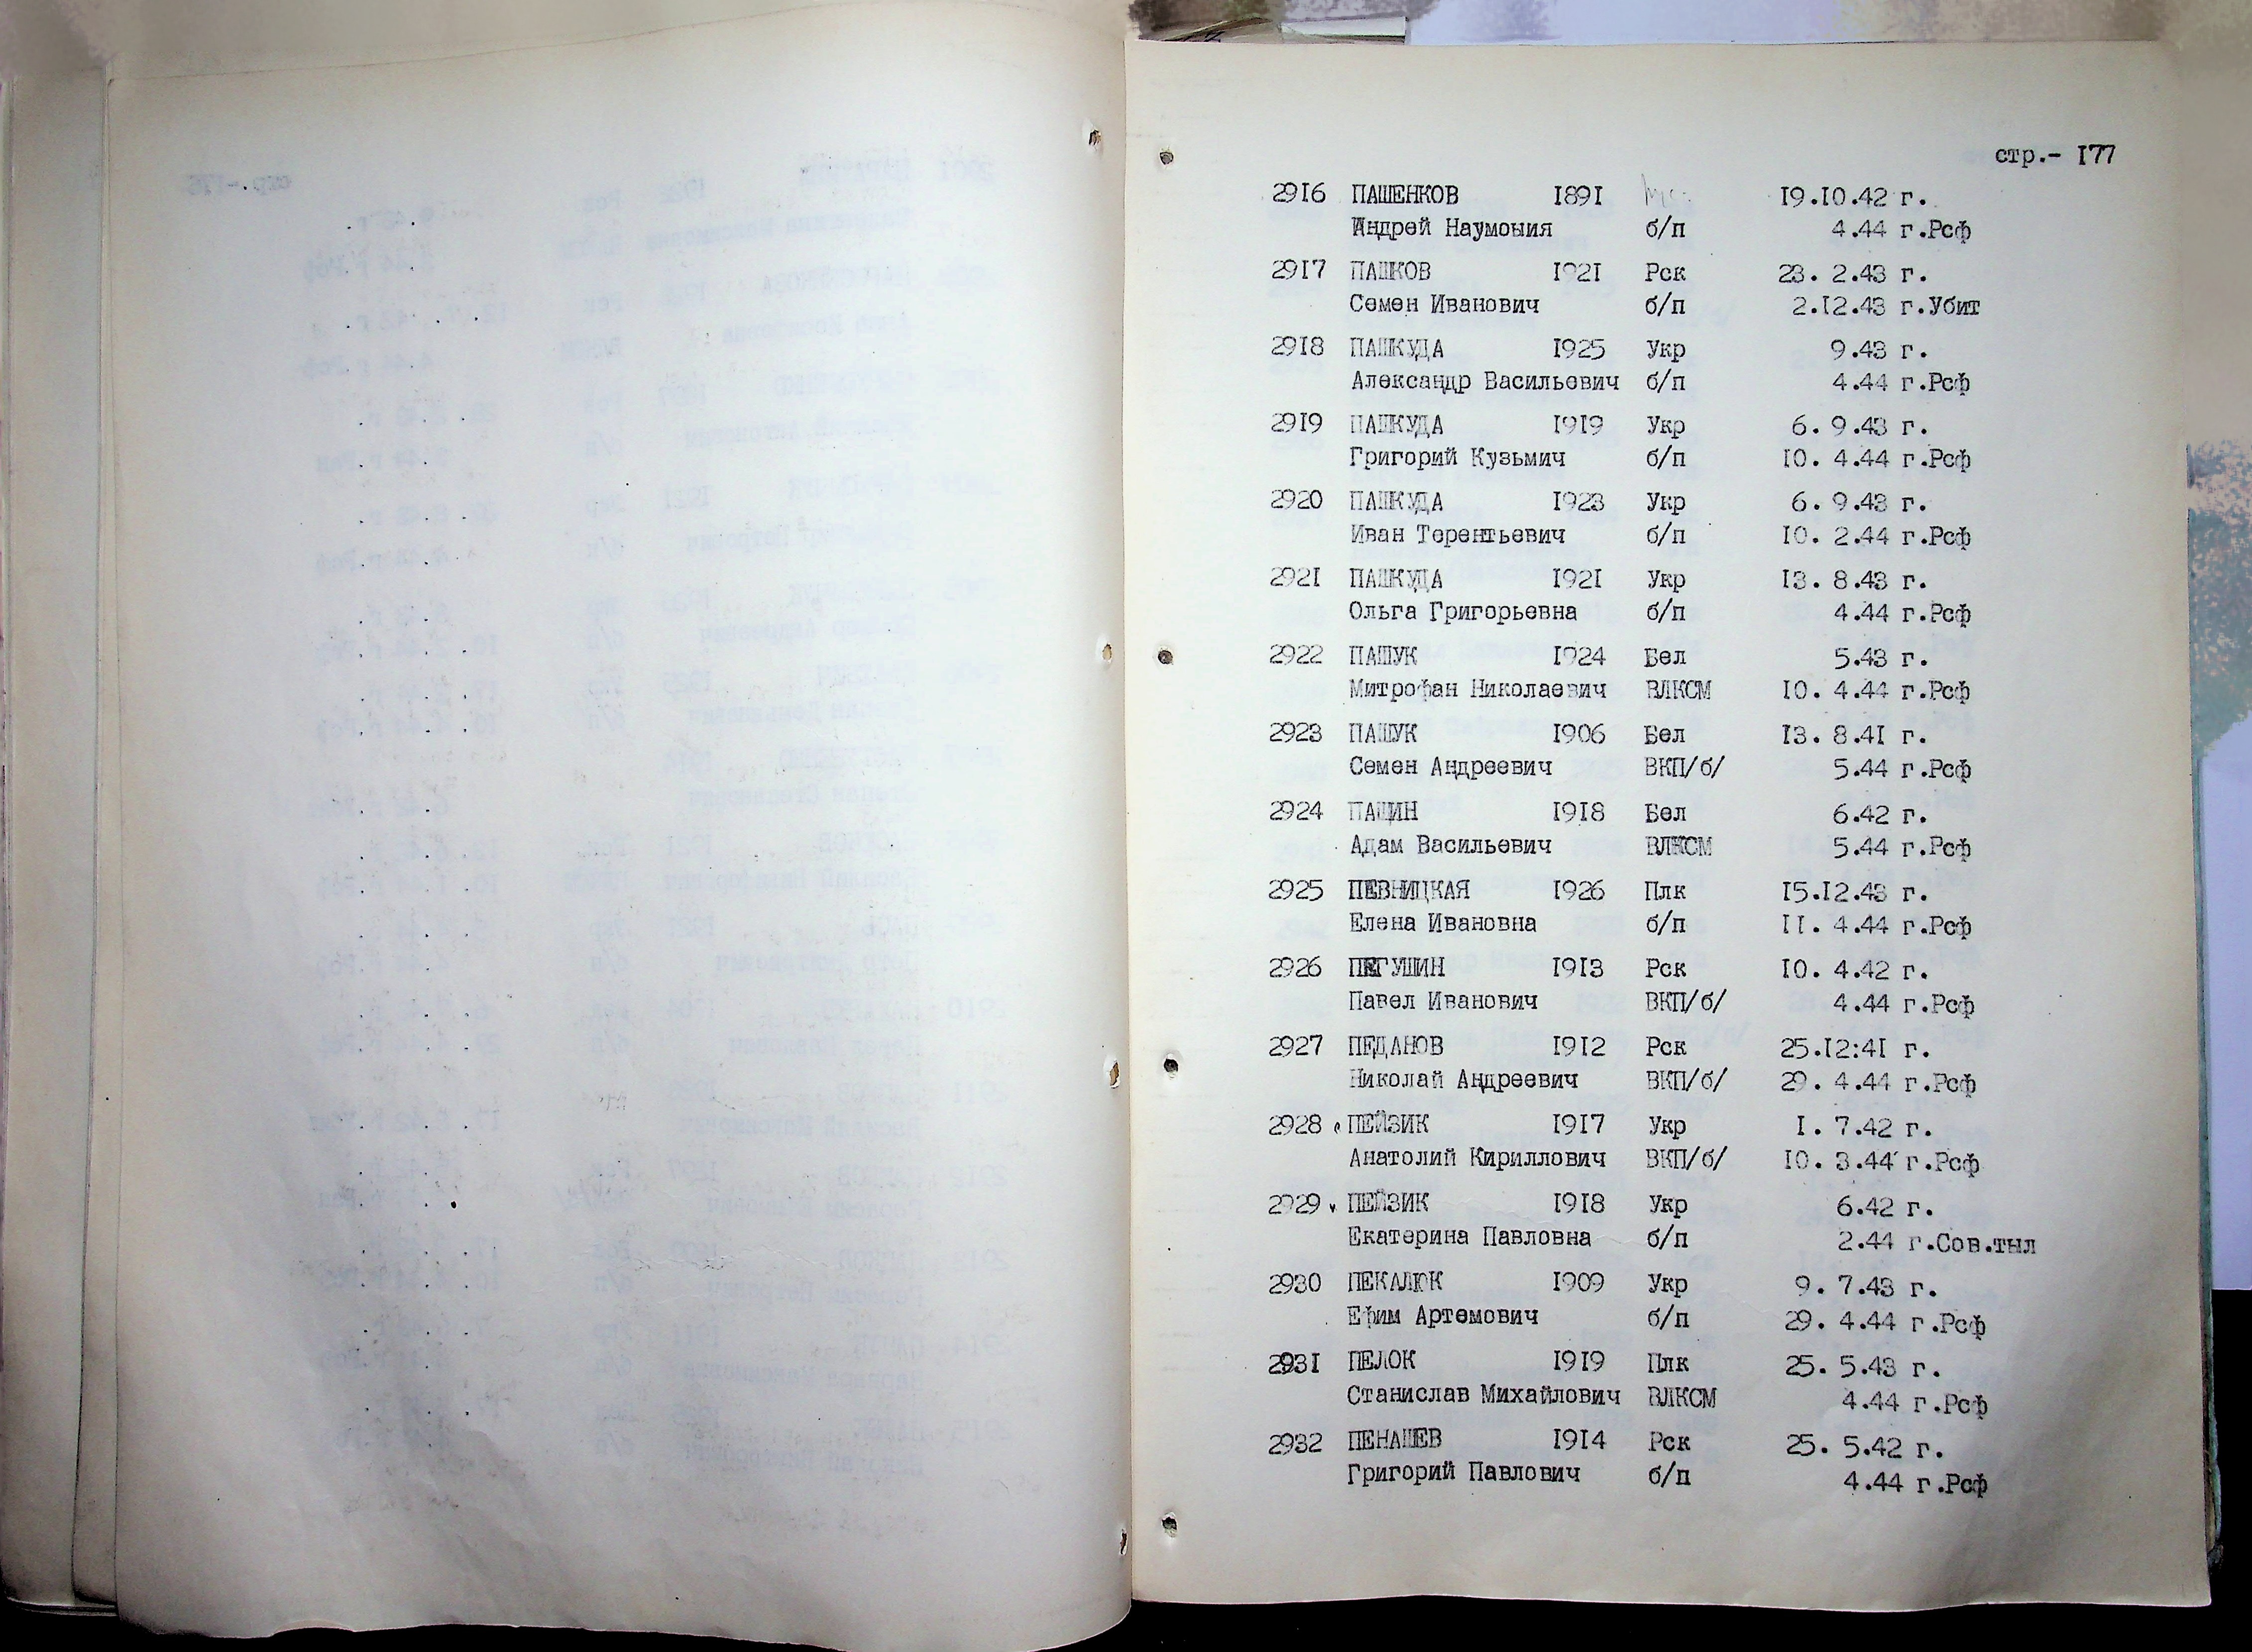 стр.- 177
2916 ПАШЕНКОВ 1891 19.10.42 г.
Андрей Наумоыия б/п 4.44 г.Рсф
2917 ПАШКОВ 1921 Рск 23. 2.43 г.
Семен Иванович б/п 2.12.43 г.Убит
2918 ПАШКУДА 1925 Укр 9.43 г.
Александр Васильевич б/п 4.44 г.Рсф
2919 ПАШКУДА 1919 Укр 6. 9.43 г.
Григорий Кузьмич б/п 10. 4.44 г.Рсф
2920 ПАШКУДА 1923 Укр 6. 9.43 г.
Иван Терентьевич б/п 10. 2.44 г.Рсф
2921 ПАШКУДА 1921 Укр 13. 8.43 г.
Ольга Григорьевна б/п 4.44 г.Рсф
2922 ПАШУК 1924 Бел 5.43 г.
Митрофан Николаевич ВЛКСМ 10. 4.44 г.Рсф
2923 ПАШУК 1906 Бел 13. 8.41 г.
Семен Андреевич ВКП/б/ 5.44 г.Рсф
2924 ПАЩИН 1918 Бел 6.42 г.
Адам Васильевич ВЛКСМ 5.44 г.Рсф
2925 ПЕВНИЦКАЯ 1926 Плк 15.12.43 г.
Елена Ивановна б/п 11. 4.44 г.Рсф
2926 ПЕГУШИН 1913 Рск 10. 4.42 г.
Павел Иванович ВКП/б/ 4.44 г.Рсф
2927 ПЕДАНОВ 1912 Рск 25.12:41 г.
Николай Андреевич ВКП/б/ 29. 4.44 г.Рсф
2928 ПЕЙЗИК 1917 Укр 1. 7.42 г.
Анатолий Кириллович ВКП/б/ 10. 3.44 г.Рсф
2929 ПЕЙЗИК 1918 Укр 6.42 г.
Екатерина Павловна б/п 2.44 г.Сов.тыл
2930 ПЕКАЛЮК 1909 Укр 9. 7.43 г.
Ефим Артемович б/п 29. 4.44 г.Рсф
2931 ПЕЛОК 1919 Плк 25. 5.43 г.
Станислав Михайлович ВЛКСМ 4.44 г.Рсф
2932 ПЕНАШЕВ 1914 Рск 25. 5.42 г.
Григорий Павлович б/п 4.44 г.Рсф